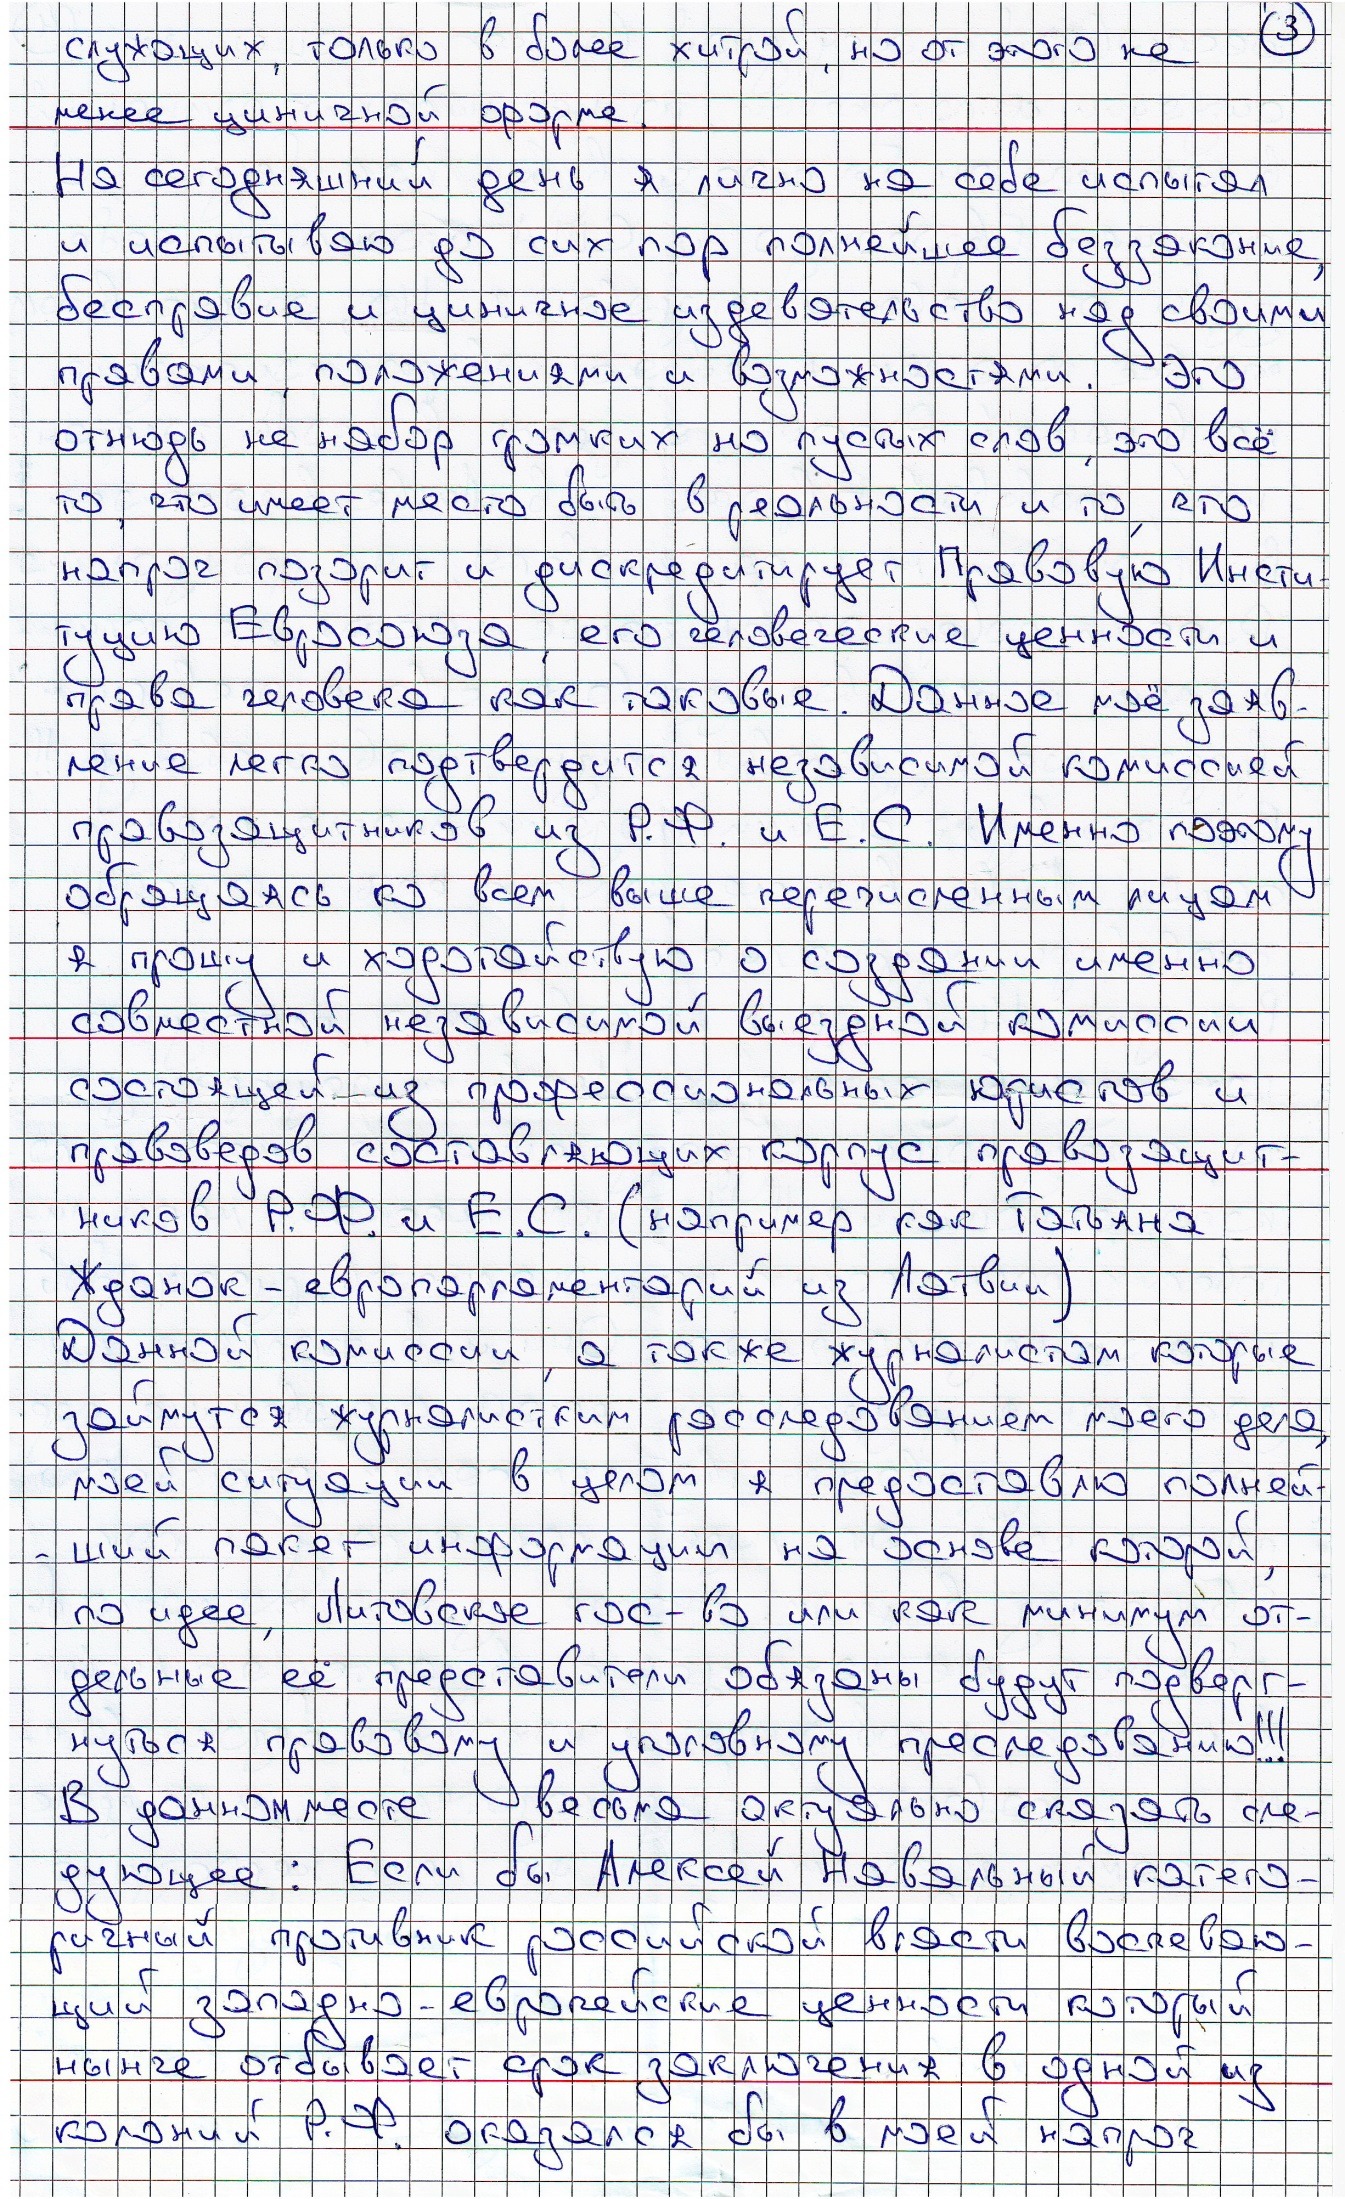 3
служащих, только в более хитрой, но от этого не
менее циничной форме.
На сегодняшний день я лично на себе испытал
и испытываю до сих пор полнейшее беззаконие,
бесправие и циничное издевательство над своими
правами, положениями и возможностями. Это
отнюдь не набор громких но пустых слов, это всё
то, что имеет место быть в реальности и то, что
напроч позорит и дискредитирует Правовую Инсти-
туцию Евросоюза, его человеческие ценности и
права человека как таковые. Данное моё заяв-
ление легко подтвердится независимой комиссией
правозащитников из Р.Ф. и Е.С. Именно поэтому
обращаясь ко всем выше перечисленным лицам
я прошу и ходотайствую о создании именно
совместной независимой выездной комиссии
состоящей из профессиональных юристов и
правоведов составляющих корпус правозащит-
ников Р.Ф. и Е.С. (например как Татьяна
Жданок - европарламентарий из Латвии)
Данной комиссии, а также журналистам которые
займутся журналистким расследованием моего дела,
моей ситуации в целом я предоставлю полней-
- ший пакет информации на основе которой,
по идее, Литовское гос-во или как минимум от-
дельные её представители обязаны будут подверг-
нуться правовому и уголовному преследованию!!!
В данном месте весьма актуально сказать сле-
дующее: Если бы Алексей Навальный катего-
ричный противник российской власти воспеваю-
щий западно-европейские ценности который
нынче отбывает срок заключения в одной из
колоний Р.Ф. оказался бы в моей напроч